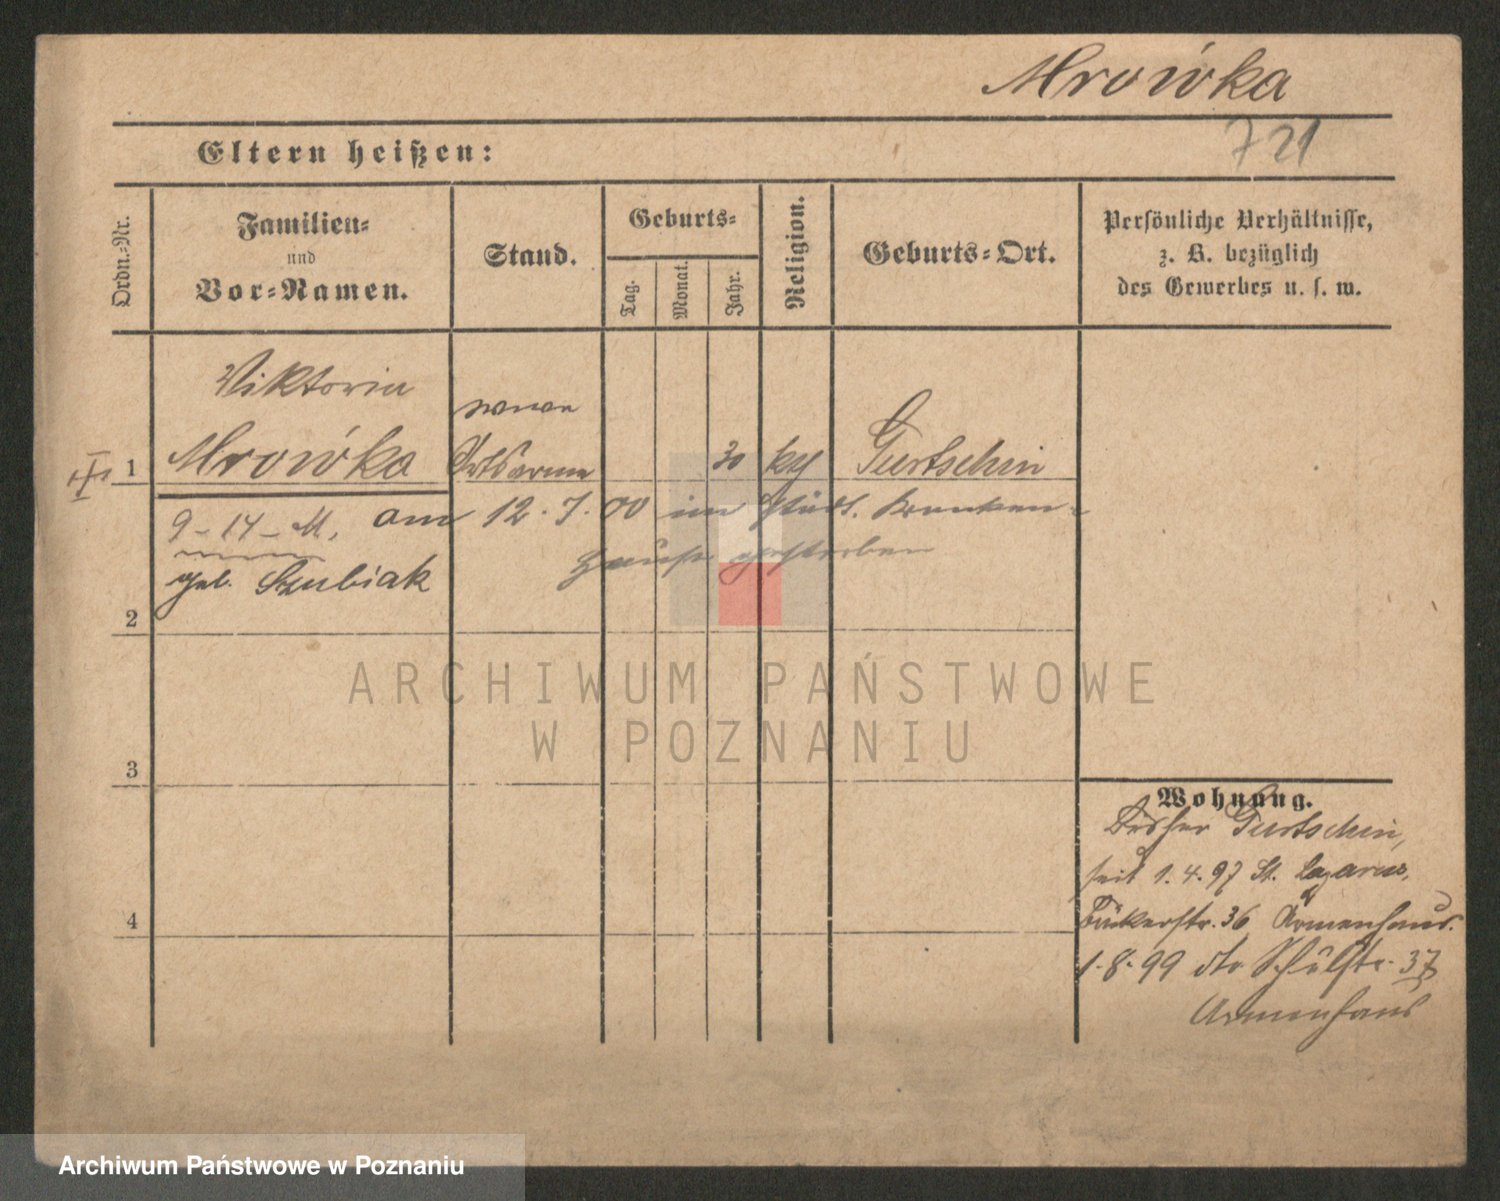 Mrowka
721
Eltern heißen:
Ordn.=Nr.
Familien=
und
Vor=Namen.
Stand.
Geburts=
Tag.
Monat.
Jahr.
Religion.
Geburts=Ort.
Persönliche Verhältnisse,
z. B. bezüglich
des Gewerbes u. s. w.
Viktoria
Mrówka
Ortsarme
30
Gurtschin
1
am 12. 7. 00 im städt. Kranken=
hause gestorben
9 - 14 - M.
geb. Szubiak
2
3
4
Wohnung.
Bisher Gurtschin,
seit 1. 4. 97 St. Lazarus,
Bäckerstr. 36 Armenhaus.
1. 8. 99 dto Schulstr. 37
Armenhaus
ARCHIWUM PAŃSTWOWE
W POZNANIU
Archiwum Państwowe w Poznaniu